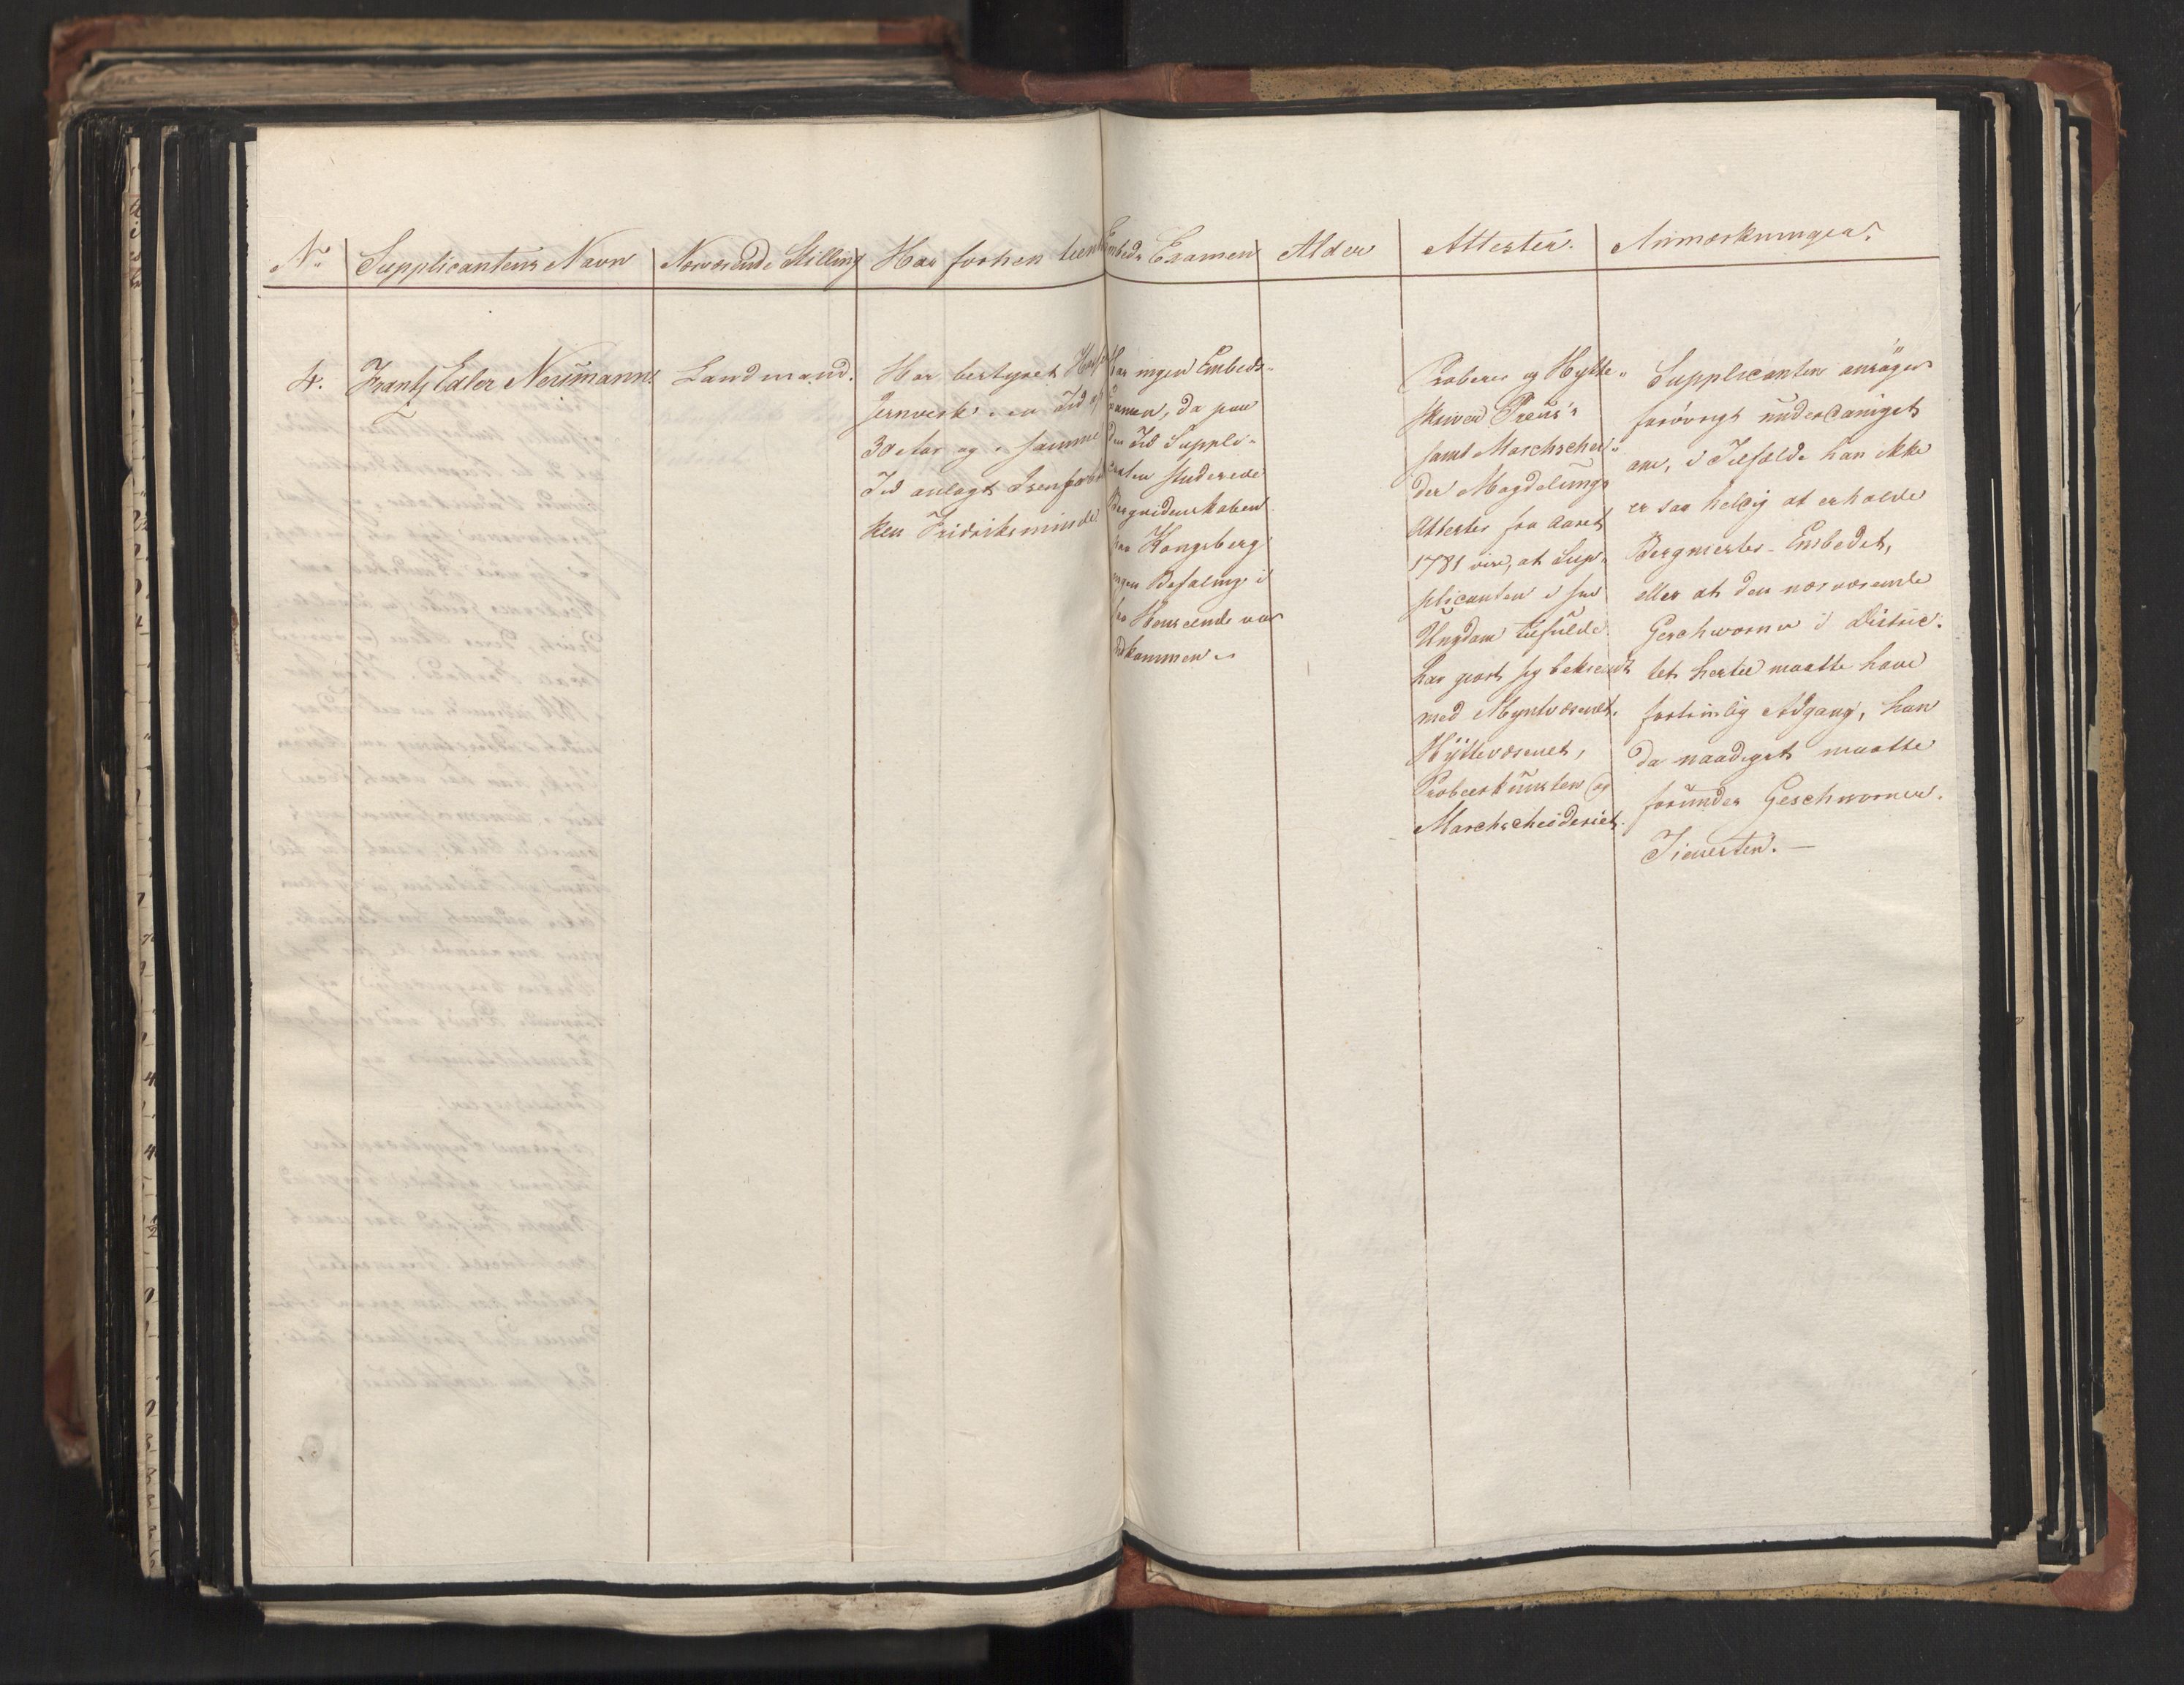 No
Supplicantens Navn
Nærværende Stilling
Har forhen tient
Embeds Examen
Alder
Attester.
Anmærkninger.
4.
Frantz Edler Neümann.
Landmand.
Har bestyret
Jernverk i en Tid af
30 Aar og i samme
Tid anlagt
ken Fridriksminde
Har ingen Embeds-
Examen, da paa
den Tid Suppli-
canten studerede
Bergvidenskaben
paa Kongsberg
ingen Befaling i
saa Henseende var
udkommen.
Proberer og Hytte-
skriver
samt Marchschei-
der Magdelungs
Attester fra Aaret
1781 vise, at Sup-
plicanten i sin
Ungdom tilfulde
har giort sig bekiendt
med Myntvæsenet,
Hÿttevæsenet,
Probeerkünsten og
Marchscheideriet.
Supplicanten ansøger
forøvrigt ünderdanigst
om, i Tilfælde han ikke
er saa heldig at erholde
Bergmester-Embedet,
eller at den nærværende
Geschworner i District-
tet hertil maatte have
fortrinlig Adgang, han
da naadigst maatte
forundes Geschworner-
Tienesten. —